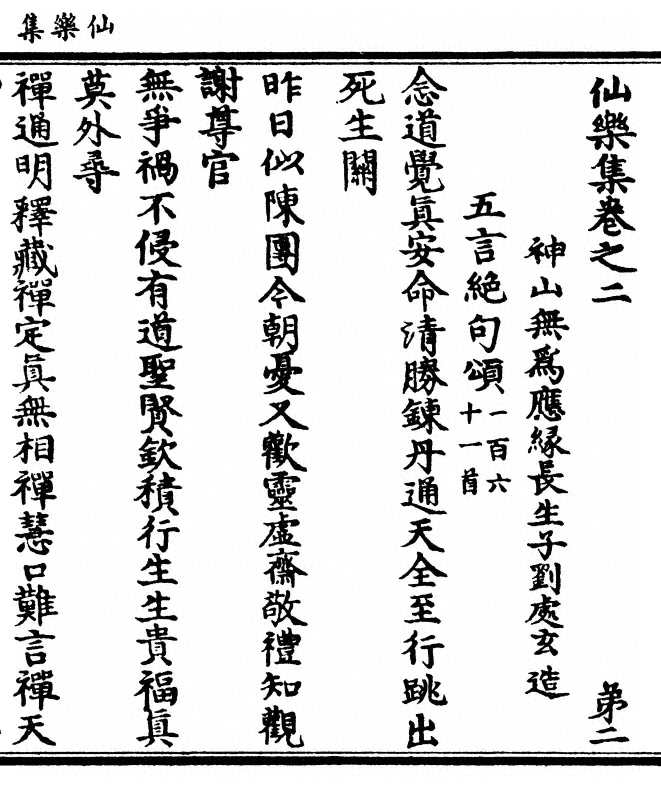 仙樂集
仙樂集卷之二　第二
神山無爲應緣長生子劉處玄造
五言絕句頌一百六十一首
念道覺眞安命清勝鍊丹通天全至行跳出
死生關
昨日似陳團今朝憂又歡靈虛齋敬禮知觀
謝尊官
無爭禍不侵有道聖賢欽積行生生貴福眞
莫外尋
禪通明釋藏禪定眞無相禪慧口難言禪天